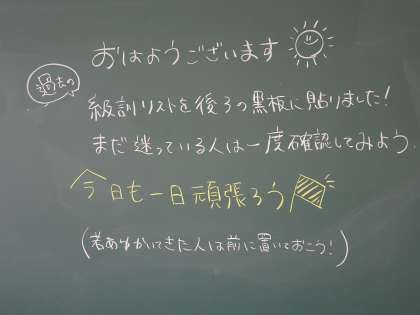 おはようございます
過去の
級訓リストを後ろの黒板に貼りました!
まだ迷っている人は一度確認してみよう.
今日も一日頑張ろう
(若あゆかいてきた人は前に置いておこう!)